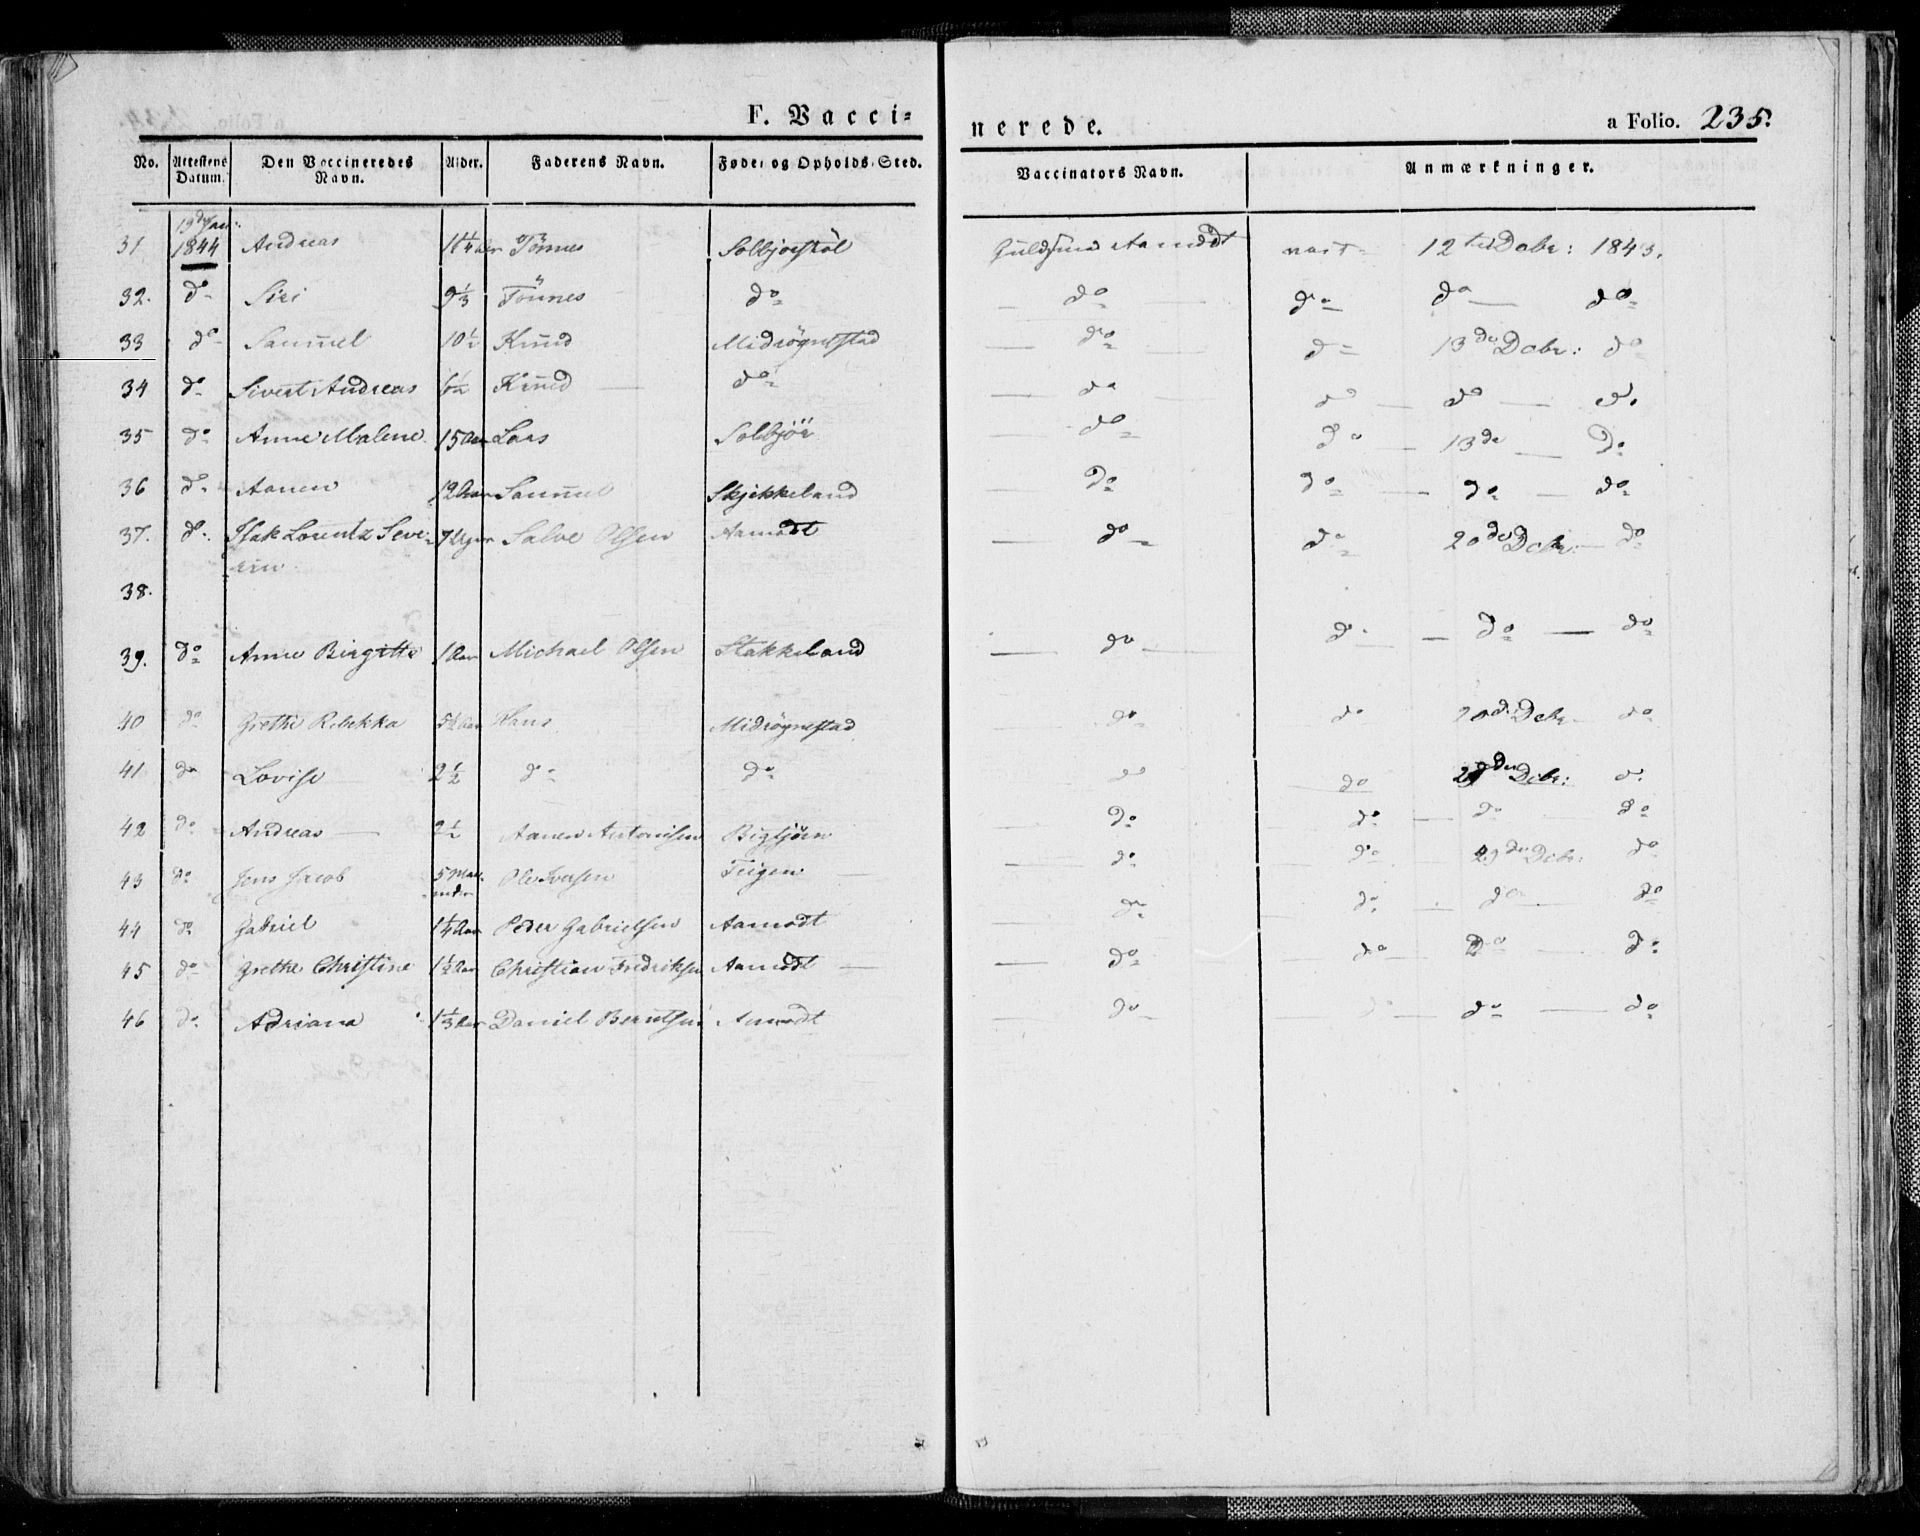 F. Vacci=
nerede.
a Folio. 235.
No. Attestens Datum. Den Vaccineredes Navn. Alder. Faderens Navn. Føde- og Opholds-Sted. Vaccinators Navn. Anmærkninger.
31. 19de Jan: 1844 Andreas 1 1/4 Aar Tönnes Aamodt 12te Debr: 1843.
32. do Siri 9 1/3 Tönnes do do do do do
33 do Samuel 10 1/2 Knud Midrögnestad do do 13de Debr: do
34 do Sivert Andreas 6 1/2 Knud do do do do do
35 do Anne Malene 15 Aar Lars Solbjör do do 13de do
36 do Aanen 12 Aar Samuel Skjekkeland do do do do
37. do Isak Lorentz Seve=
rin 7 Uger Salve Olsen Aamodt do do 20de Debr: do
38.
39. do Anne Birgitte 1 Aar Michael Olsen Stakkeland do do do do
40 do Grethe Rebekka 5 1/2 Aar Hans Midrögnestad do do 20de Debr do
41 do Lovise 2 1/2 do do do do Debr: do
42 do Andreas 2 1/2 Aanen Antonisen do do do do
43 do Jens Jacob 5 Maa=
neder Ole Iversen Teigen do do 29de Debr: do
44 do Gabriel 1 1/4 Aar Peder Gabrielsen Aamodt do do do do
45 do Grethe Christine 1 1/2 Aar Christian Fredriksen Aamodt do do do do
46 do Adriana 1 1/3 Aar Daniel Berntsen Aamodt do do do do